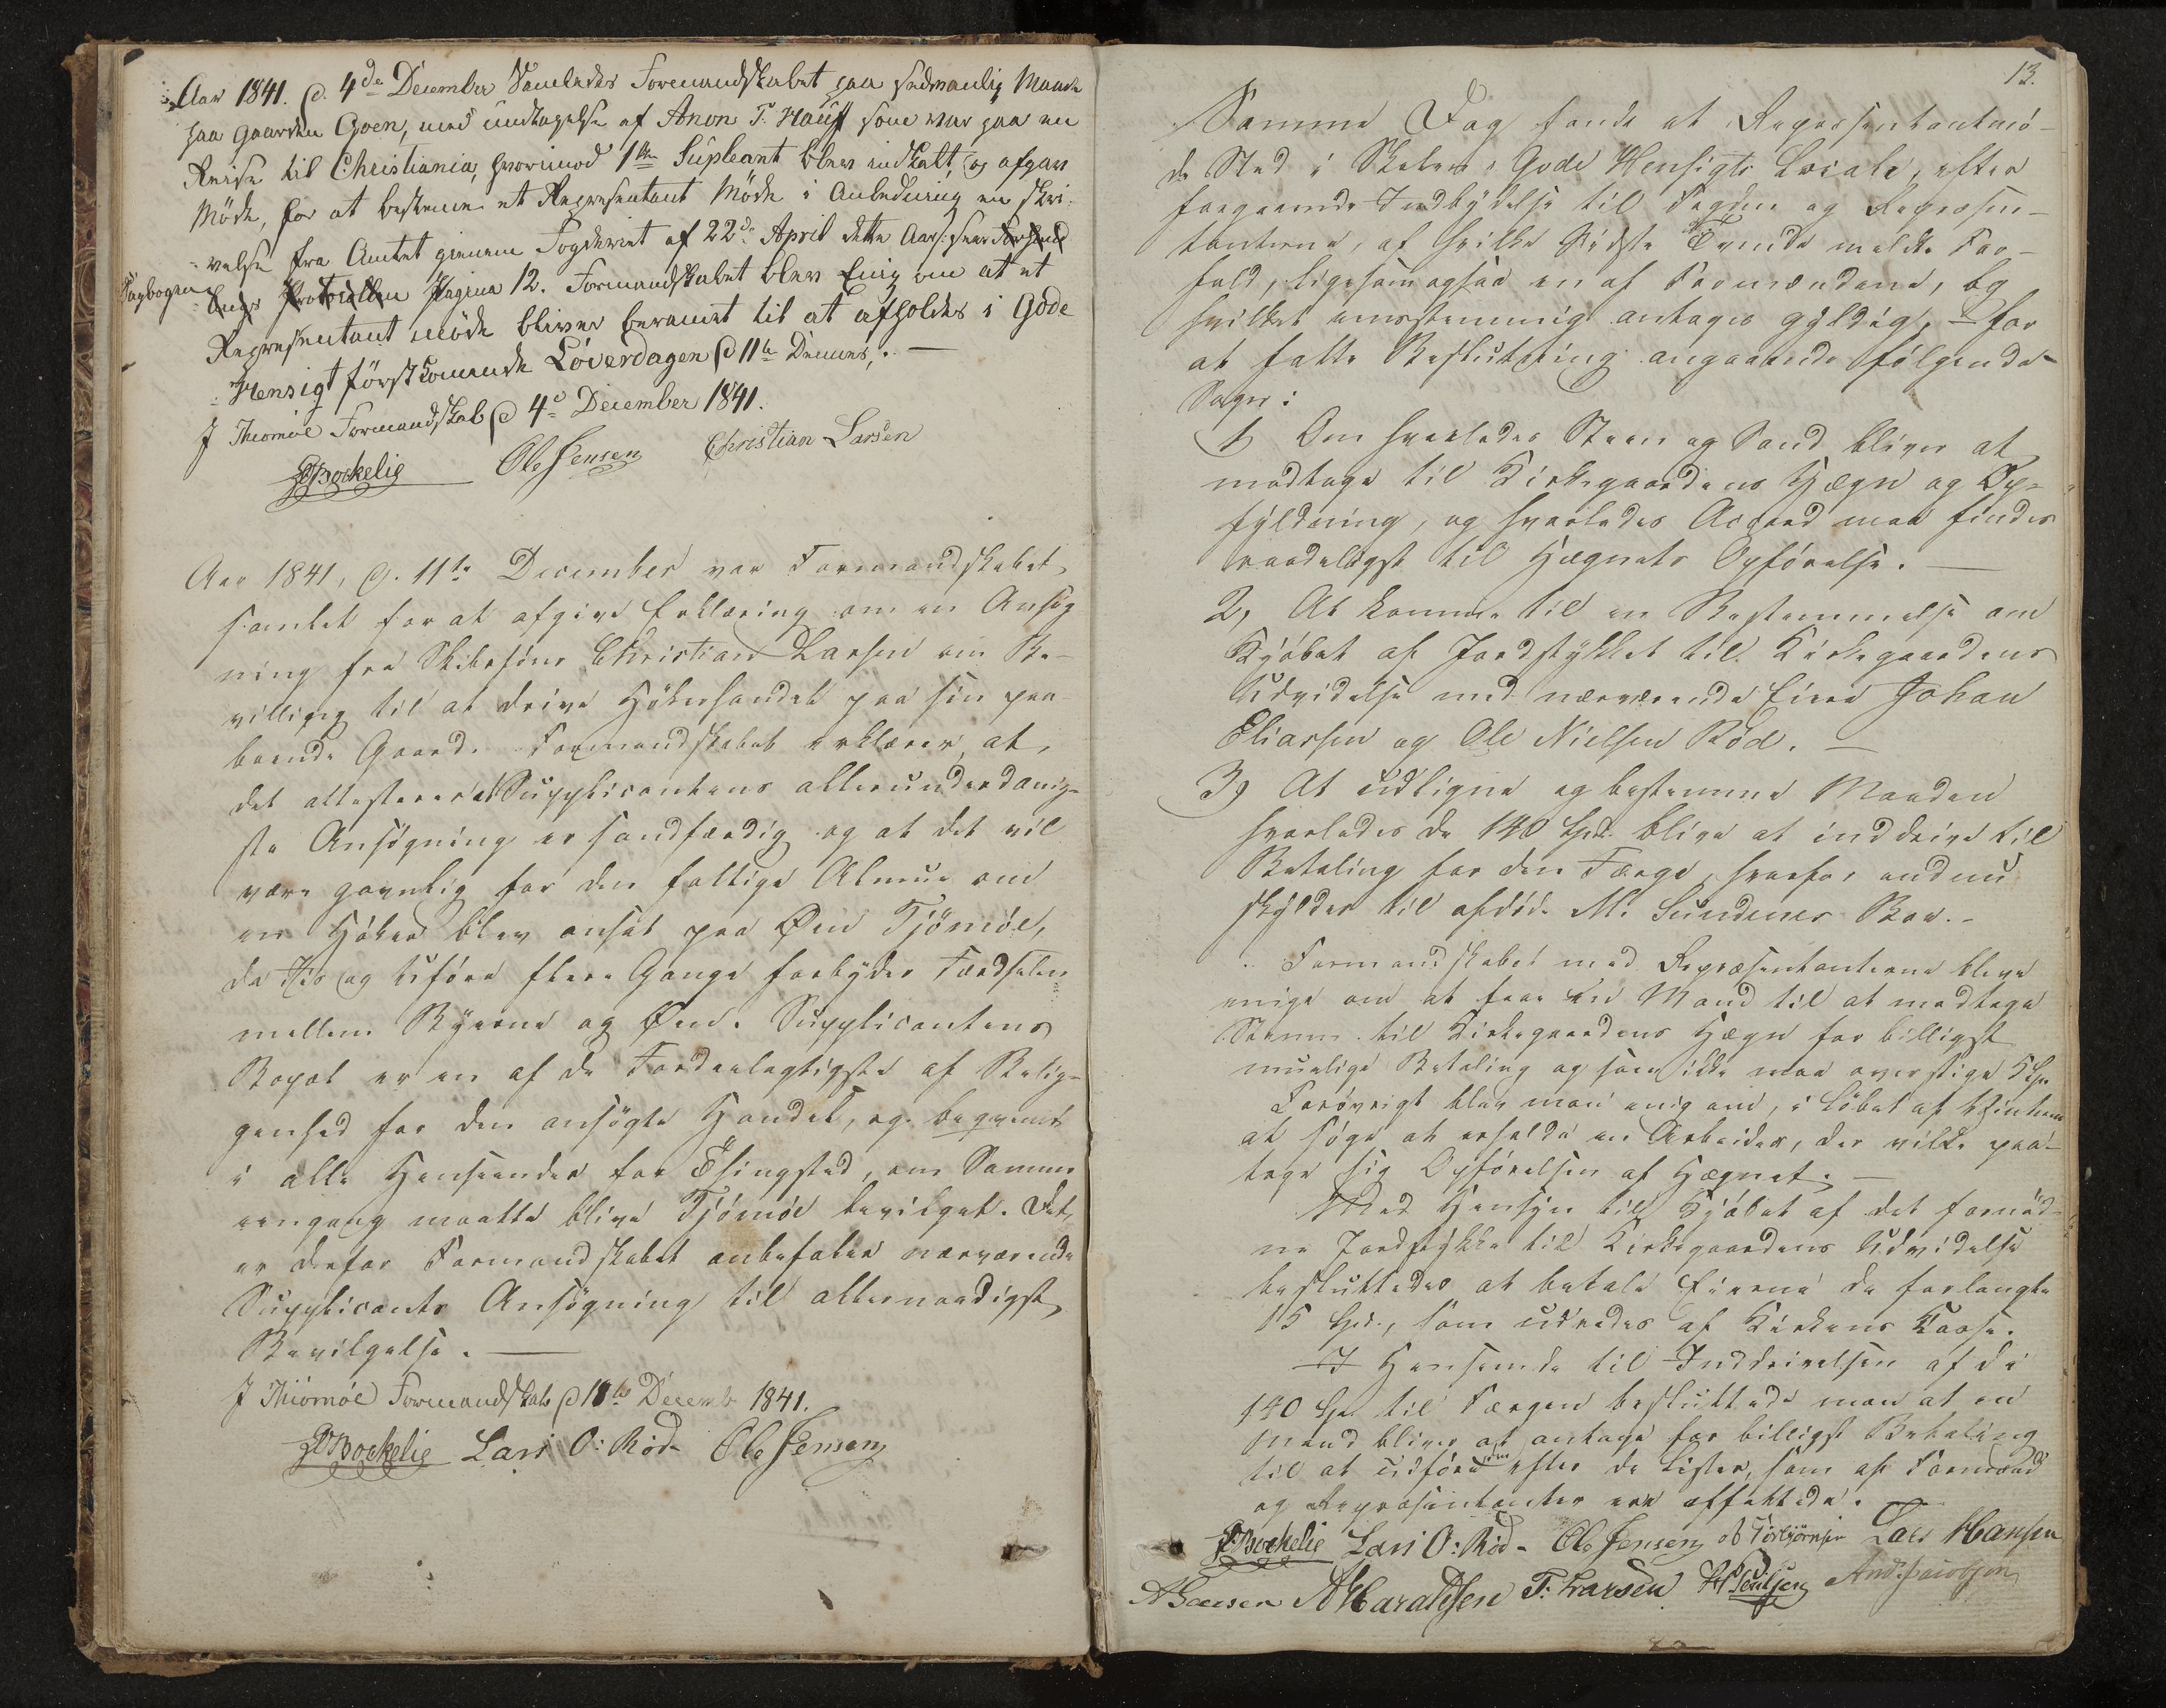 Aar 1841. d. 4de December Samledes Formandskabet paa sædvanlig Maade
paa Gaarden Goen, med undtagelse af Anon T. Hauff som var paa en
Reise til Christiania, hvorimod 1ste Supleant blev indkalt, og afgav
Møde, for at bestemme et Representant Møde i Anledning en Skri-
velse fra Amtet gienem Fogderiet af 22de April dette Aar
Dagbogen Protocollen Pagina 12. Formandskabet blev Enig om at et
Representant møde bliver beramet til at afholdes i Gode
Hensigt førstkomende Løverdagen d 11te Dennes. —
J Thiomøe Formandskab d 4de December 1841.
Bockelie Ole Jensen Christian Larsen
Aar 1841, d. 11te December var Formandskabet
samlet for at afgive Erklæring om en Ansøg-
ning fra Skibsfører Christian Larsen om Be-
villing til at drive Høkerhandel paa sin paa-
boende Gaard. Formandskabet erklærer, at
det attesterer at Supplicantens allerunderdanig-
ste Ansøgning er sandfærdig og at det vil
være gavnlig for den fattige Almue om
en Høker blev ansat paa Øen Tjömöe,
da Iis og Uføre flere Gange forbyder Færdselen
mellem Byerne og Øen. Supplicantens
Bopæl er en af de Fordeelagtigste af Belig-
genhed for den ansøgte Handel, og beqvemt
i alle Henseender for Thingsted, om Samme
eengang maatte blive Tjömöe bevilget. Det
er derfor Formandskabet anbefaler nærværende
Supplicants Ansøgning til allernaadigst
Bevilgelse. —
J Thiomøe Formandskab d 18de Decemb 1841.
Bockelie Lars O: Rød- Ole Jensen
13.
Samme Dag fandt et Repræsentantmø-
de Sted i Skolens Gode Hensigts Locale, efter
foregaaende Indbydelse til Fogden og Repræsen-
tanterne, af hvilke Sidste Tvende meldte For-
fald, ligesom ogsaa en af Formændene, og
hvilket eenstemmig antages gyldig, — for
at fatte Beslutning angaaende følgende
Sager:
1, Om hvorledes Steen og Sand bliver at
modtage til Kirkegaardens Hægn og Op-
fyldning, og hvorledes Accord maa findes
raadeligst til Hægnets Opførelse. —
2, At komme til en Bestemmelse om
Kjøbet af Jordstykket til Kirkegaardens
Udvidelse med nærværende Eiere Johan
Eliassen og Ole Nielsen Rød. —
3, At udligne og bestemme Maaden
hvorledes de 140 Spd. blive at inddrive til
Betaling for den Færge, hvorfor endnu
skyldes til afdøde M. Sundenes Boe. -
Formandskabet med Repræsentanterne bleve
enige om at faae en Mand til at modtage
Steene til Kirkegaardens Hægn for billigst
muelige Betaling og som ikke maa overstige 5 Spd
Forøvrigt blev man enig om, i Løbet af Vinteren
at søge at erholde en Arbeider, der vilde paa-
tage sig Opførelsen af Hægnet. —
Med Hensyn til Kjøbet af det fornød-
ne Jordstykke til Kirkegaardens Udvidelse
besluttedes at betale Eierne de forlangte
15 Spd., som udredes af Kirkens Casse.
I Henseende til Inddrivelsen af de
140 Spd til Færgen besluttede man at en
Mand bliver at antage for billigst Betaling
til at udføre den efter de Lister, som af Formænd
og Repræsentanter ere affattede.
Bockelie Lars O: Rød- Ole Jensen O Torbjörnsen Lars Hansen
A Hansen A Haraldsen T: Larsen H Poulsen And: Jacobsen